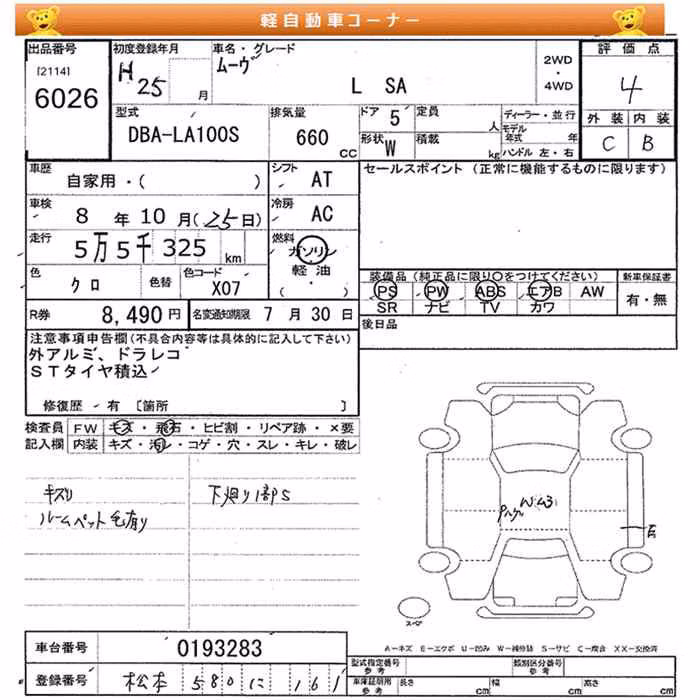 軽自動車コーナー
出品番号
[2114]
6026
初度登録年月
H25 月
車名・グレード
ムーヴ
L SA
2WD
・
4WD
評価点
4
外装 内装
C B
型式
DBA-LA100S
排気量
660 CC
ドア 5
定員 人
形状 W
積載 kg
ディーラー・並行
モデル年式 年
ハンドル 左・右
車歴
自家用・( )
シフト
AT
車検
8 年 10 月 (25 日)
冷房
AC
走行
5万5千325 km
燃料
ガソリン
・
軽油
( )
色
クロ
色替
色コード
X07
R券 8,490円
名変通知期限 7 月 30 日
セールスポイント (正常に機能するものに限ります)
装備品 (純正品に限り○をつけてください)
PS PW ABS エアB AW
SR ナビ TV カワ
新車保証書
有・無
後日品
注意事項申告欄(不具合内容等は具体的に記入して下さい)
外アルミ、ドラレコ
STタイヤ積込
修復歴 有 [箇所 ]
検査員記入欄
FW キズ・飛石・ヒビ割・リペア跡・×要
内装 キズ・汚レ・コゲ・穴・スレ・キレ・破レ
キズリ
ルームペット毛有り
下廻り1部S
W3
スペア
A-キズ E-エクボ U-凹み W-補修跡 S-サビ C-腐合 XX-交換済
車台番号 0193283
登録番号 松本 580 に 161
型式指定番号 参考
類別区分番号 参考
車庫証明用 参考
長さ cm
幅 cm
高さ cm